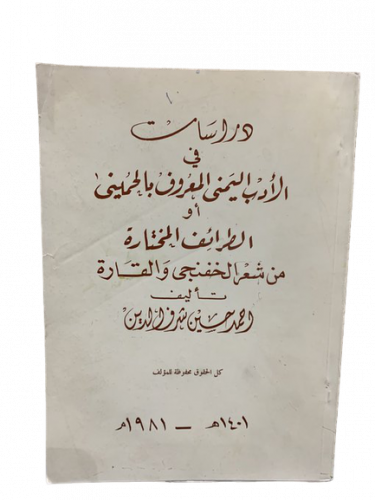 دراسات
في
الأدب اليمنى المعروف بالحمينى
أو
الطرائف المختارة
من شعر الخفنجى والقارة
تأليف
احمد حسين شرف الدين
كل الحقوق محفوظة للمؤلف
١٤٠١هـ – ١٩٨١م